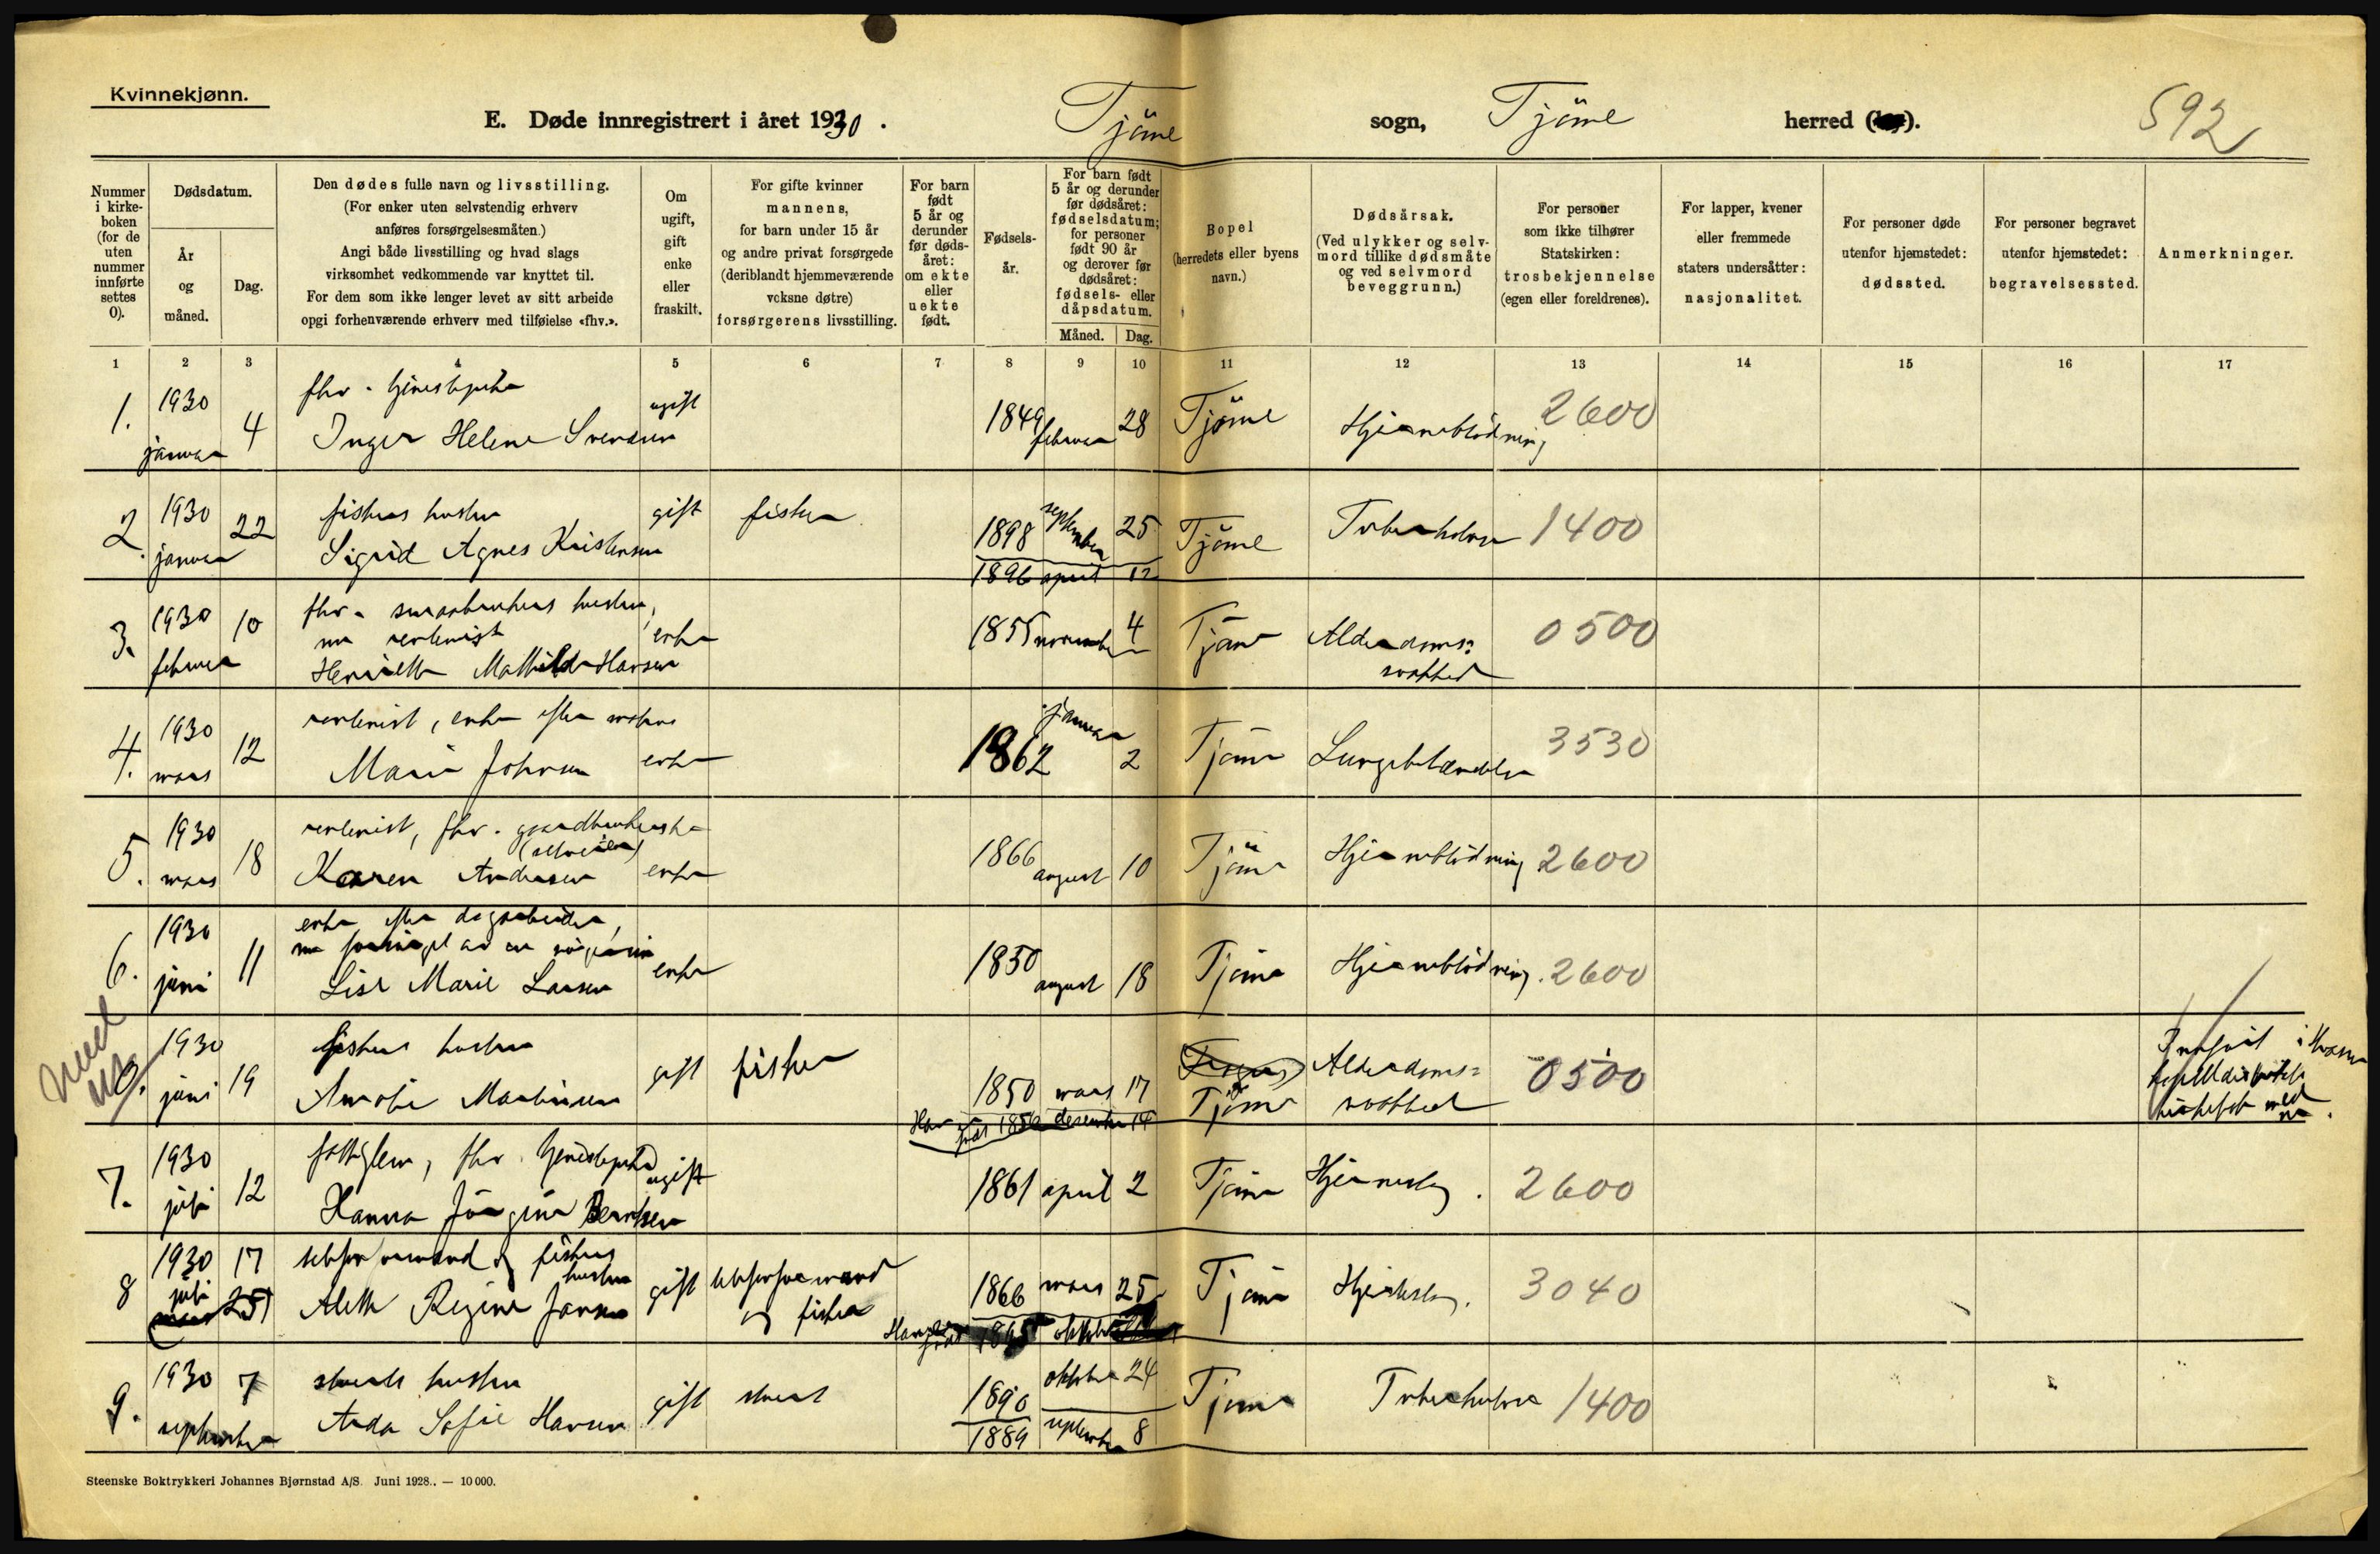 Kvinnekjønn.
E. Døde innregistrert i året 1930. Tjöme sogn, Tjöme herred ( ). 592
Nummer i kirkeboken (for de uten nummer innførte settes 0).
Dødsdatum.
År og måned.
Dag.
Den dødes fulle navn og livsstilling.
(For enker uten selvstendig erhverv anføres forsørgelsesmåten.)
Angi både livsstilling og hvad slags virksomhet vedkommende var knyttet til.
For dem som ikke lenger levet av sitt arbeide opgi forhenværende erhverv med tilføielse «fhv.».
Om ugift, gift enke eller fraskilt.
For gifte kvinner mannens, for barn under 15 år og andre privat forsørgede (deriblandt hjemmeværende voksne døtre) forsørgerens livsstilling.
For barn født 5 år og derunder før dødsåret: om ekte eller uekte født.
Fødselsår.
For barn født 5 år og derunder før dødsåret: fødselsdatum; for personer født 90 år og derover før dødsåret: fødsels- eller dåpsdatum.
Måned. Dag.
Bopel (herredets eller byens navn.)
Dødsårsak.
(Ved ulykker og selvmord tillike dødsmåte og ved selvmord beveggrunn.)
For personer som ikke tilhører Statskirken: trosbekjennelse (egen eller foreldrenes).
For lapper, kvener eller fremmede staters undersåtter: nasjonalitet.
For personer døde utenfor hjemstedet: dødssted.
For personer begravet utenfor hjemstedet: begravelsessted.
Anmerkninger.
1 2 3 4 5 6 7 8 9 10 11 12 13 14 15 16 17
1. 1930 januar 4 fhv. tjenestepike
Inger Helene Svendsen ugift 1849 februar 28 Tjöme Hjerneblödning 2600
2. 1930 januar 22 fiskers hustru
Sigrid Agnes Kristensen gift fisker 1898 september 25 Tjöme Tuberkulose 1400
1896 april 12
3. 1930 februar 10 fhv. smaabrukers hustru,
nu rentenist
Henriette Mathilde Hansen enke 1855 november 4 Tjöme Alderdoms=
svakhed 0500
4. 1930 mars 12 rentenist, enke efter
Marie Johnsen enke 1862 januar 2 Tjöme Lungebetændelse 3530
5. 1930 mars 18 rentenist, fhv. gaardbrukerske
(selveier)
Karen Andersen enke 1866 august 10 Tjöme Hjerneblödning 2600
6. 1930 juni 11 enke efter dagarbeider,
nu forsörget av en
Lise Marie Larsen enke 1850 august 18 Tjöme Hjerneblödning. 2600
0. 1930 juni 19 fiskers hustru
Amalie Martinsen gift fisker 1850 mars 17 Tjöme Alderdoms=
svakhed 0500
desember 14
7. 1930 juli 12 fattiglem, fhv. tjenestepike
Hanna Jörgine Berntsen ugift 1861 april 2 Tjöme Hjerneslag. 2600
8 1930 juli 17 og fiskers
hustru
Alette Regine Jansen gift og fisker 1866 mars 25 Tjöme Hjerteslag. 3040
9. 1930 september 7 stuerts hustru
Anda Sofie Hansen gift stuert 1890 oktober 24 Tjöme Tuberkulose 1400
1889 september 8
Steenske Boktrykkeri Johannes Bjørnstad A/S. Juni 1928.. — 10 000.